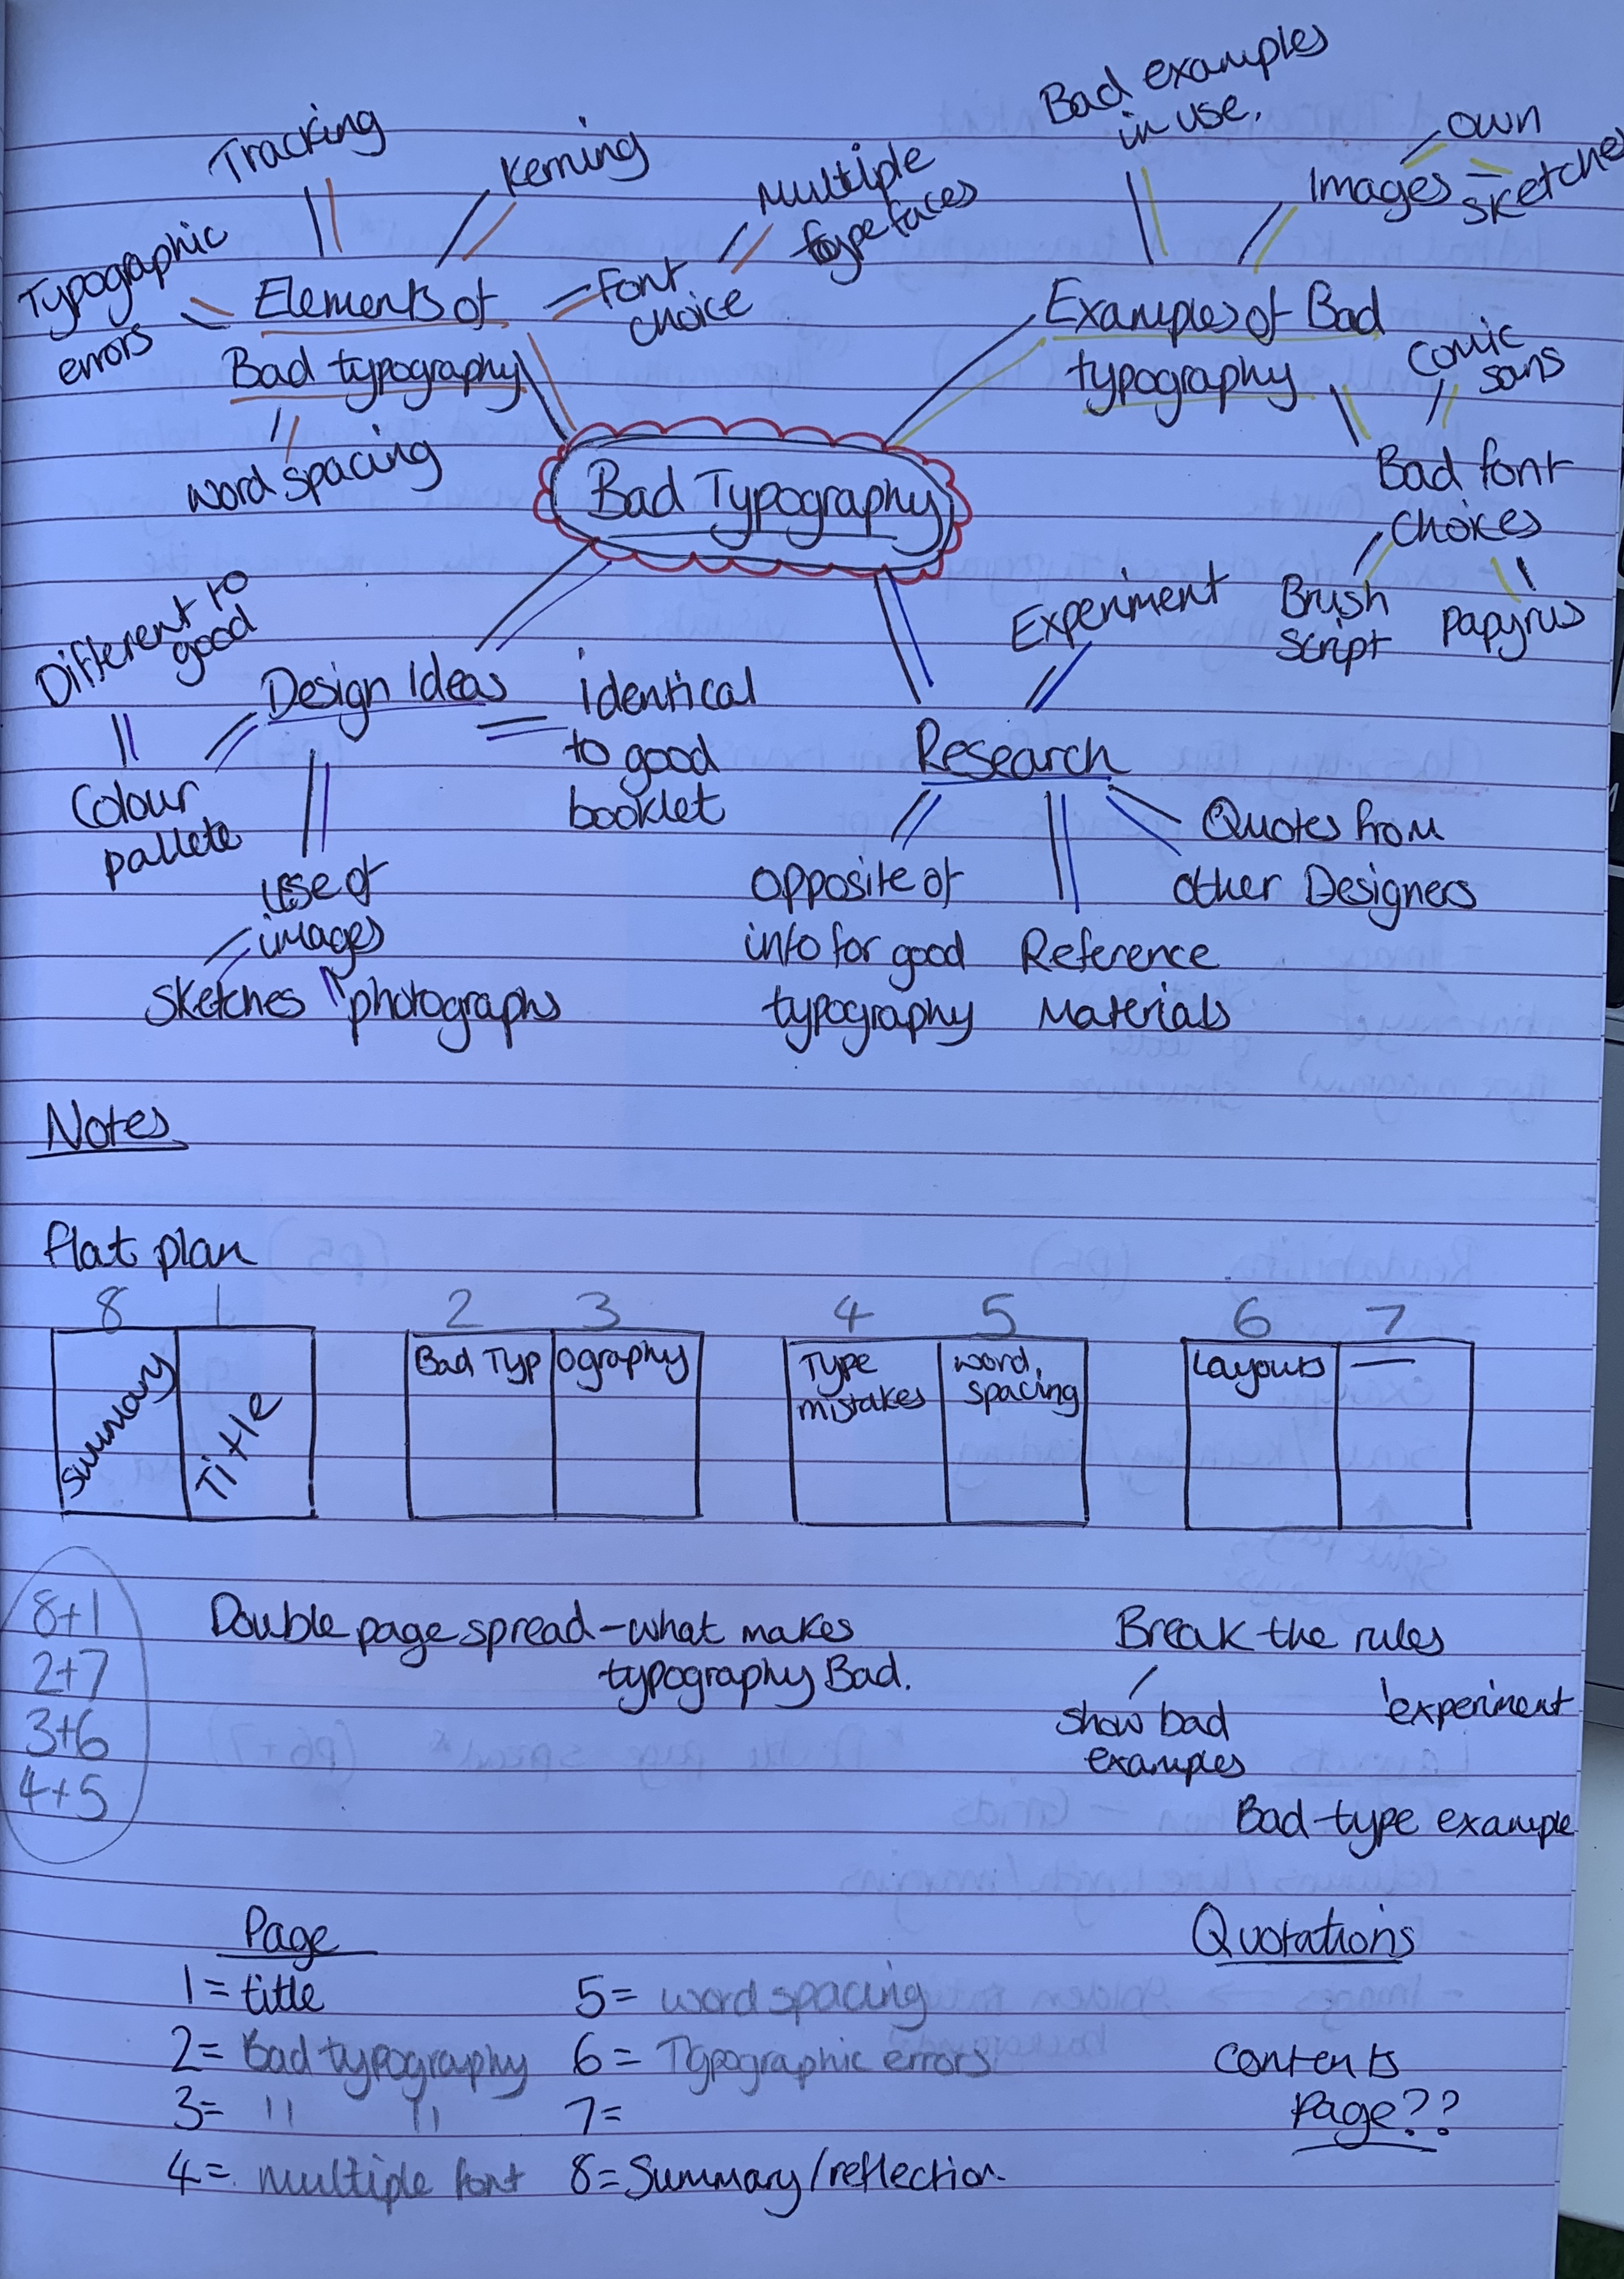 Bad examples
in use.
own
Images
sketches
Tracking
Kerning
Multiple
typefaces
Typographic
errors
Elements of
Bad typography
font
choice
word spacing
Examples of Bad
typography
Comic
sans
Bad font
choices
Brush
Script
Papyrus
Bad Typography
Different to
good
Design Ideas
identical
to good
booklet
Colour
pallete
use of
images
sketches
photographs
Experiment
Research
opposite of
info for good
typography
Reference
Materials
Quotes from
other Designers
Notes
flat plan
8 1 2 3 4 5 6 7
Summary
Title
Bad Typ
ography
Type
mistakes
word
spacing
Layouts
8+1
2+7
3+6
4+5
Double page spread - what makes
typography Bad.
Break the rules
show bad
examples
experiment
Bad type example
Page
1 = title
2 = Bad typography
3 = " "
4 = multiple font
5 = word spacing
6 = Typographic errors
7 =
8 = Summary/reflection.
Quotations
contents
Page??